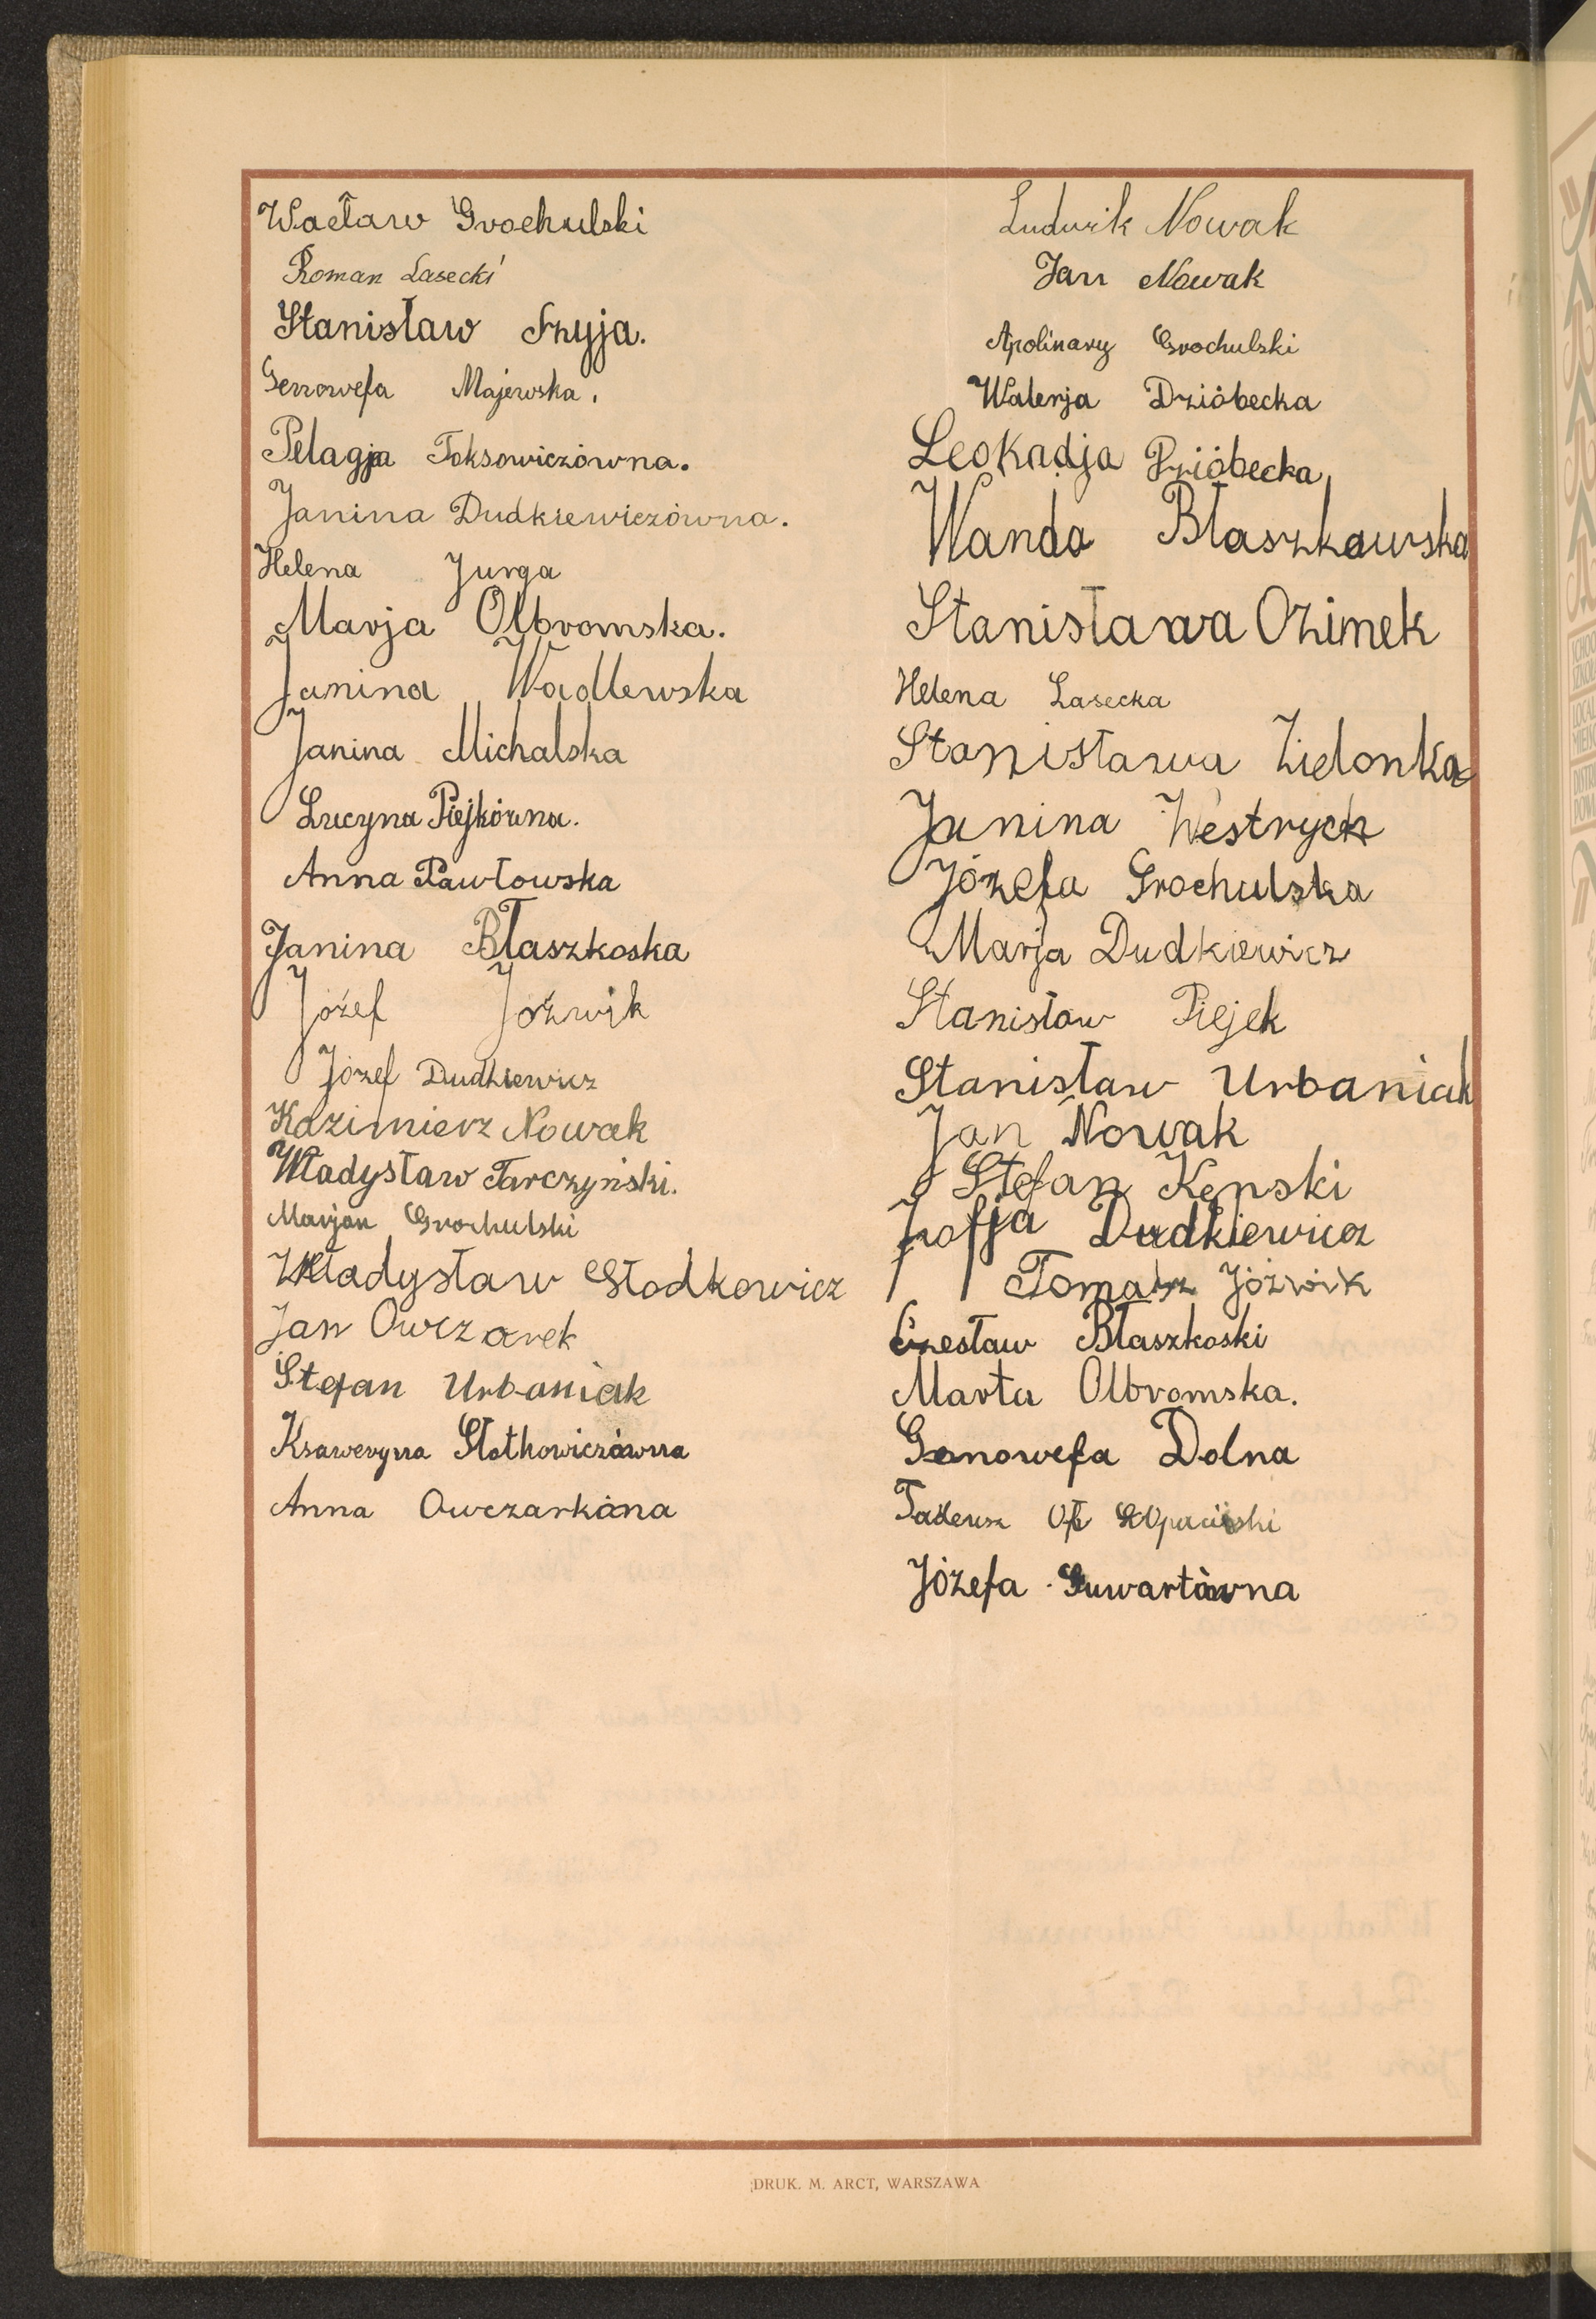 Wacław Grochulski
Roman Lasecki
Stanisław Szyja.
Genowefa Majewska.
Pelagja Foksowiczówna.
Janina Dudkiewiczówna.
Helena Jurga
Marja Olbromska.
Janina Wadlewska
Janina Michalska
Lucyna Piejkówna.
Anna Pawłowska
Janina Błaszkoska
Józef Jóźwik
Józef Dudkiewicz
Kazimierz Nowak
Władysław Tarczyński.
Marjan Grochulski
Władysław Słodkowicz
Jan Owczarek
Stefan Urbaniak
Ksaweryna Słotkowiczówna
Anna Owczarkóna
Ludwik Nowak
Jan Nowak
Apolinary Grochulski
Walerja Dzióbecka
Leokadja Dzióbecka
Wanda Błaszkowska
Stanisława Ozimek
Helena Lasecka
Stanisława Zielonka
Janina Westrych
Józefa Grochulska
Marja Dudkiewicz
Stanisław Piejek
Stanisław Urbaniak
Jan Nowak
Stefan Kenski
Zofja Dudkiewicz
Tomasz Jóźwik
Czesław Błaszkoski
Marta Olbromska.
Genowefa Dolna
Tadeusz
Józefa Guwartówna
DRUK. M. ARCT, WARSZAWA